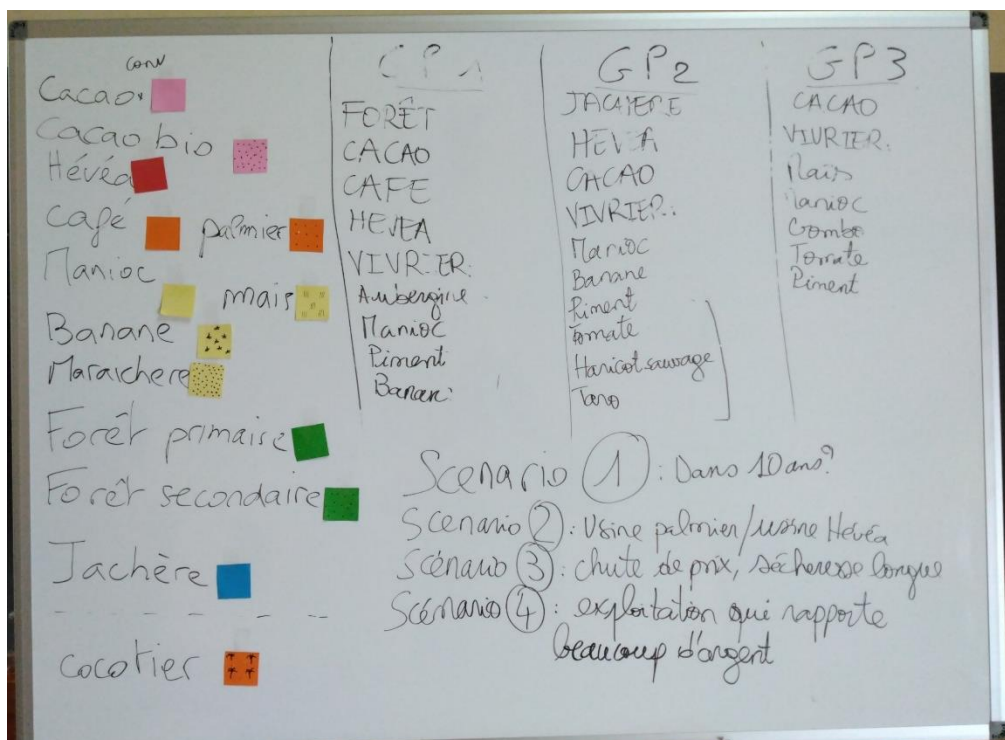 conv
Cacao
Cacao bio
Hévéa
Café palmier
Manioc
mais
Banane
Maraichere
Forêt primaire
Forêt secondaire
Jachère
cocotier
GP1
FORÊT
CACAO
CAFE
HEVEA
VIVRIER:
Aubergine
Manioc
Piment
Banane
GP2
JACHERE
HEVEA
CACAO
VIVRIER:
Manioc
Banane
Piment
Tomate
Haricot sauvage
Taro
GP3
CACAO
VIVRIER:
Maïs
Manioc
Gombo
Tomate
Piment
Scenario 1 : Dans 10 ans?
Scenario 2 : Usine palmier/usine Hévéa
Scénario 3 : chute de prix, sécheresse longue
Scénario 4 : exploitation qui rapporte
beaucoup d'argent